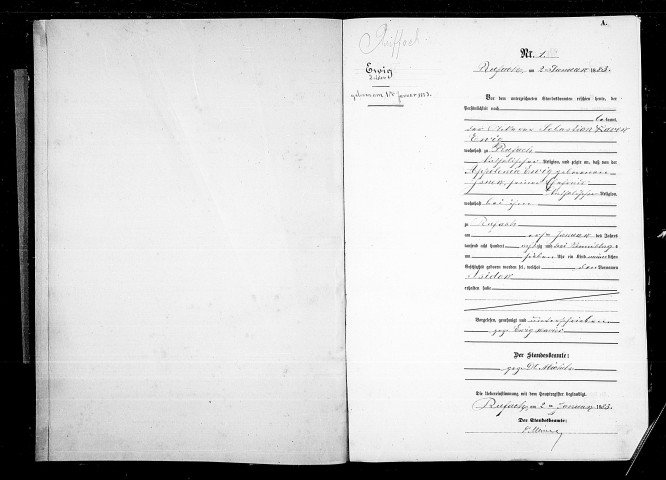 A.
Nr. 1.
Rufach, am 2. Januar 1883.
Ewig
Isidor
geboren am 1ten Januar 1883.
Vor dem unterzeichneten Standesbeamten erschien heute, der
Persönlichkeit nach
bekannt,
der Sebastian Xaver
Ewig
wohnhaft zu Rufach
katholischer Religion, und zeigte an, daß von der
Appolonia Ewig geborenen
seiner Ehefrau
katholischer Religion,
wohnhaft bei ihm
zu Rufach
am ersten Januar des Jahrs
tausend acht hundert achtzig und drei Vormittags
um sieben Uhr ein Kind männlichen
Geschlechts geboren worden sei, welches den Vornamen
Isidor
erhalten habe.
Vorgelesen, genehmigt und unterschrieben
gez. Ewig Xaver
Der Standesbeamte:
gez.
Die Uebereinstimmung mit dem Hauptregister beglaubigt.
Rufach, am 2. Januar 1883.
Der Standesbeamte: